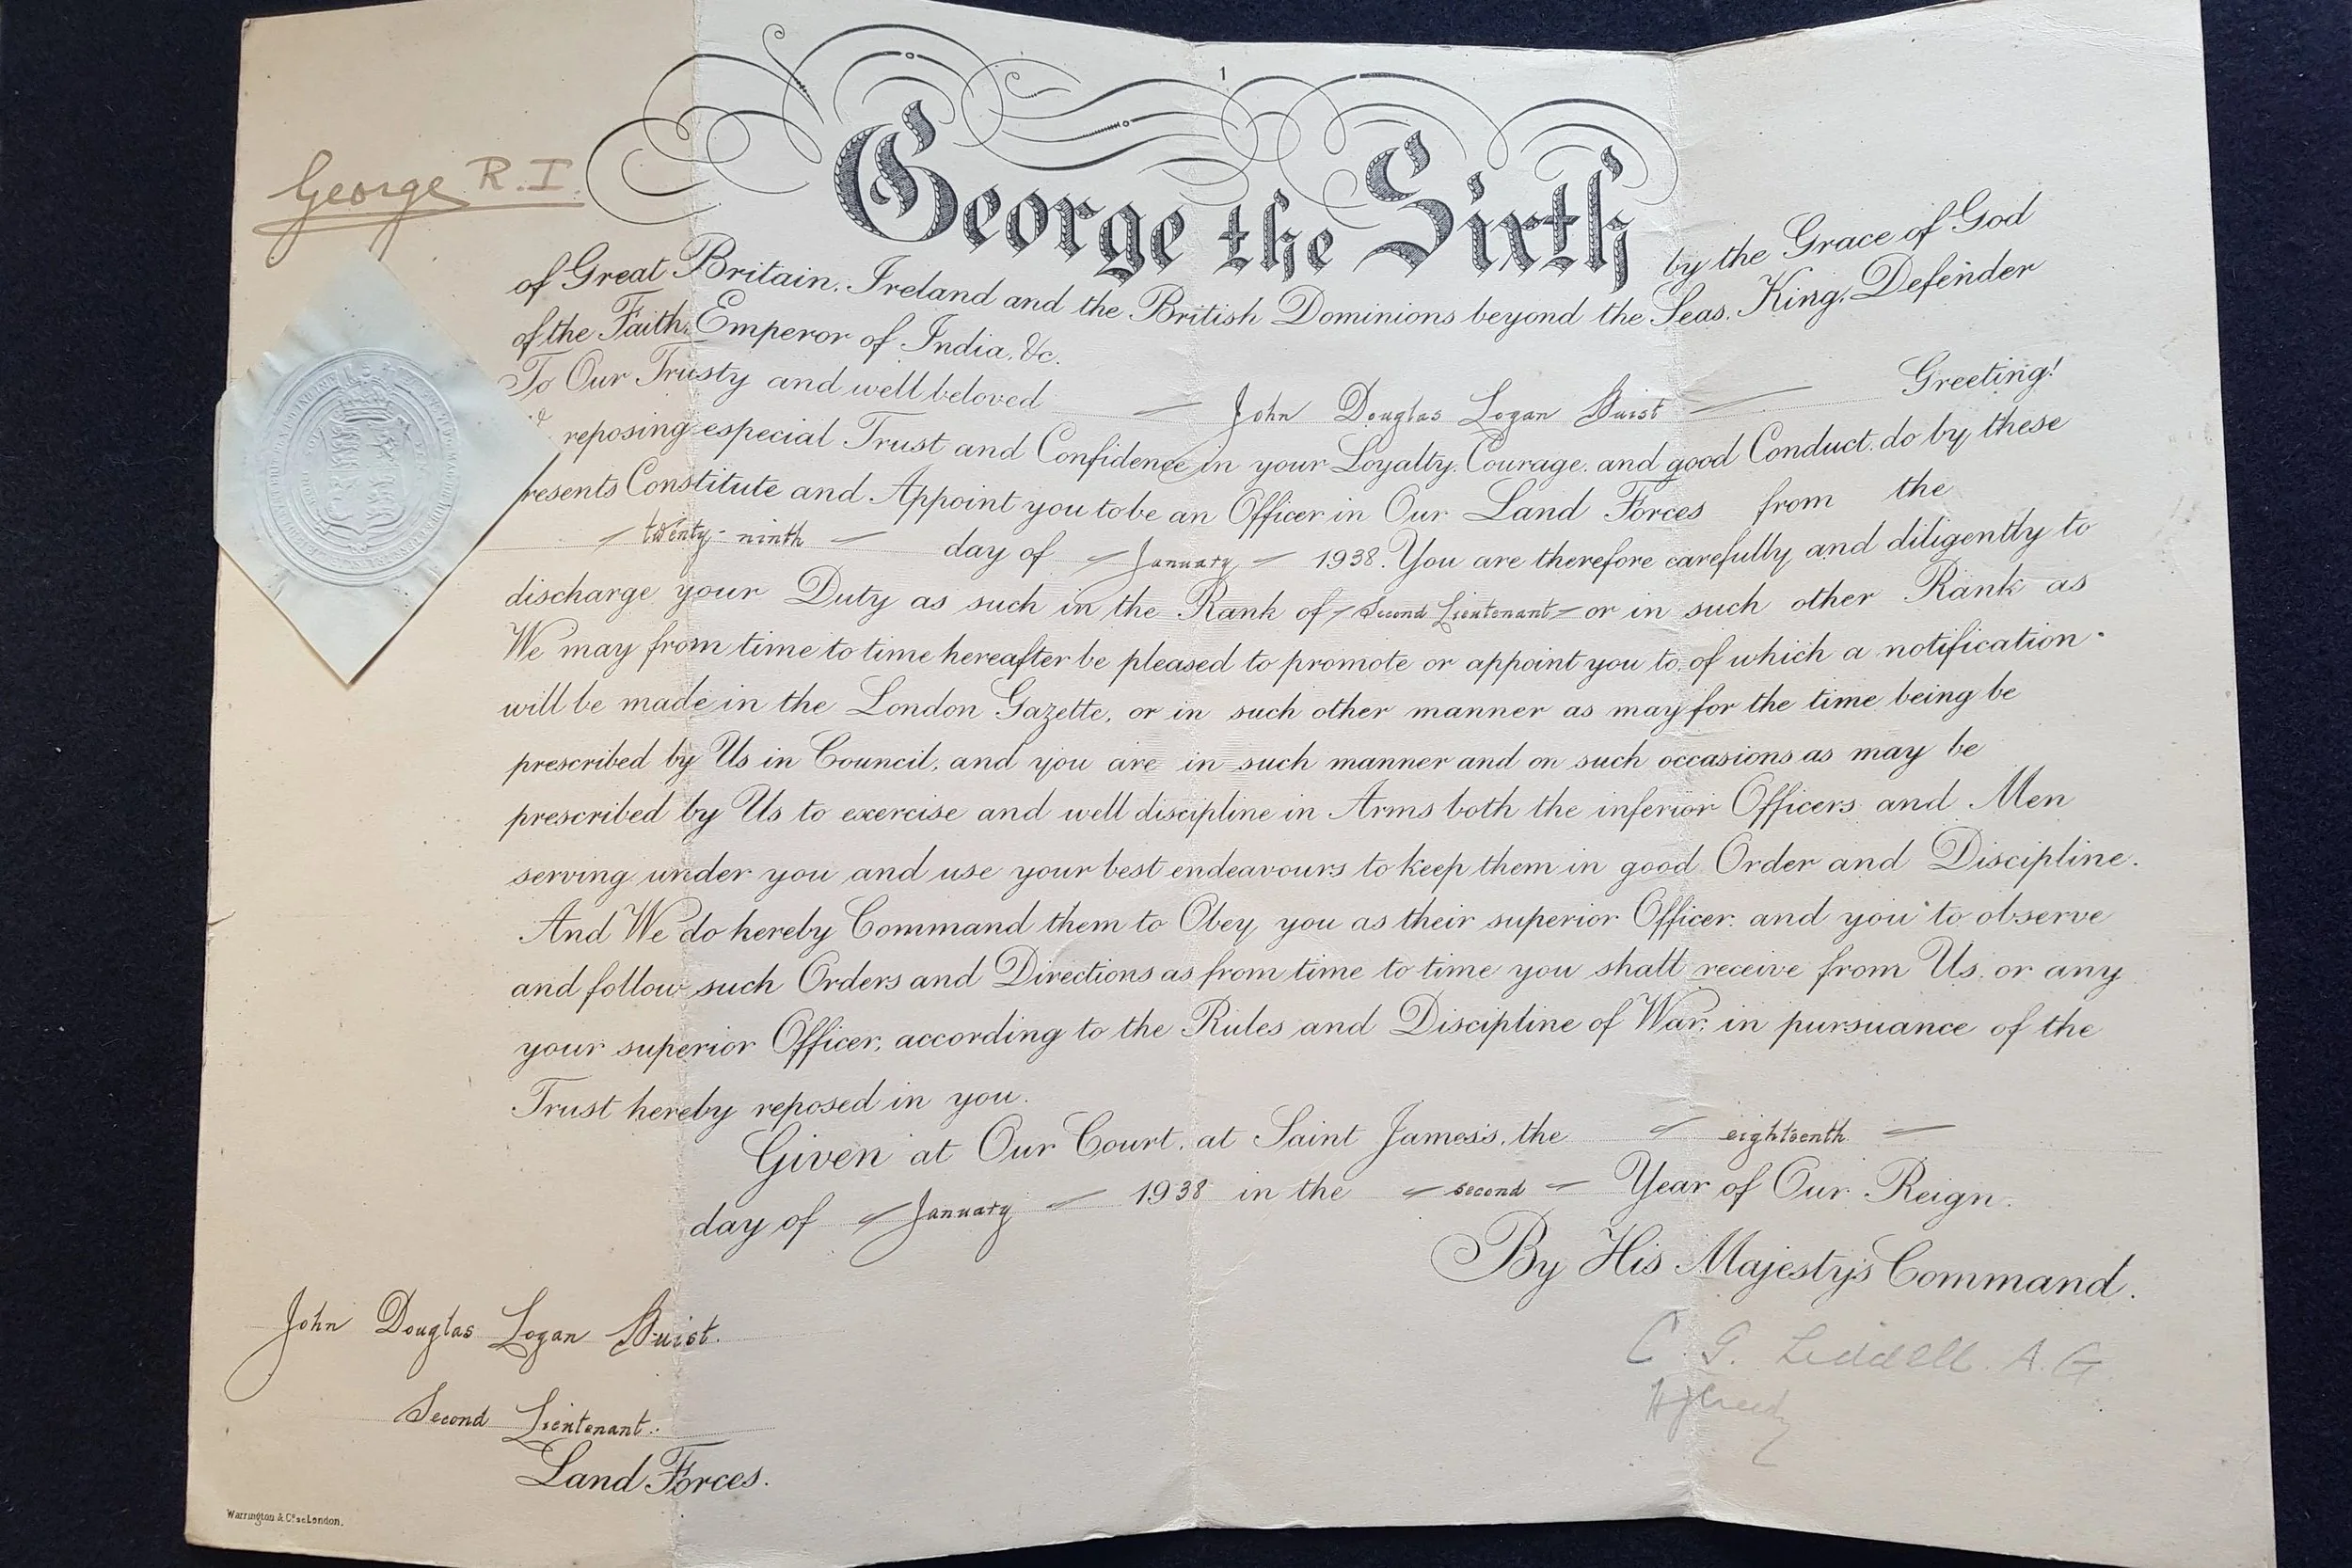 George R.I.
George the Sixth by the Grace of God
of Great Britain, Ireland and the British Dominions beyond the Seas, King, Defender
of the Faith, Emperor of India, &c.
To Our Trusty and well beloved John Douglas Logan Buist Greeting!
reposing especial Trust and Confidence in your Loyalty, Courage, and good Conduct, do by these
resents Constitute and Appoint you to be an Officer in Our Land Forces from the
twenty-ninth day of January 1938. You are therefore carefully and diligently to
discharge your Duty as such in the Rank of Second Lieutenant or in such other Rank as
We may from time to time hereafter be pleased to promote or appoint you to, of which a notification
will be made in the London Gazette, or in such other manner as may for the time being be
prescribed by Us in Council, and you are in such manner and on such occasions as may be
prescribed by Us to exercise and well discipline in Arms both the inferior Officers and Men
serving under you and use your best endeavours to keep them in good Order and Discipline.
And We do hereby Command them to Obey you as their superior Officer, and you to observe
and follow such Orders and Directions as from time to time you shall receive from Us, or any
your superior Officer, according to the Rules and Discipline of War, in pursuance of the
Trust hereby reposed in you.
Given at Our Court, at Saint James's, the eighteenth
day of January 1938 in the second Year of Our Reign.
By His Majesty's Command.
John Douglas Logan Buist.
C. G. Liddell. A.G.
HJCreedy
Second Lieutenant.
Land Forces.
Warrington & Co. sc. London.